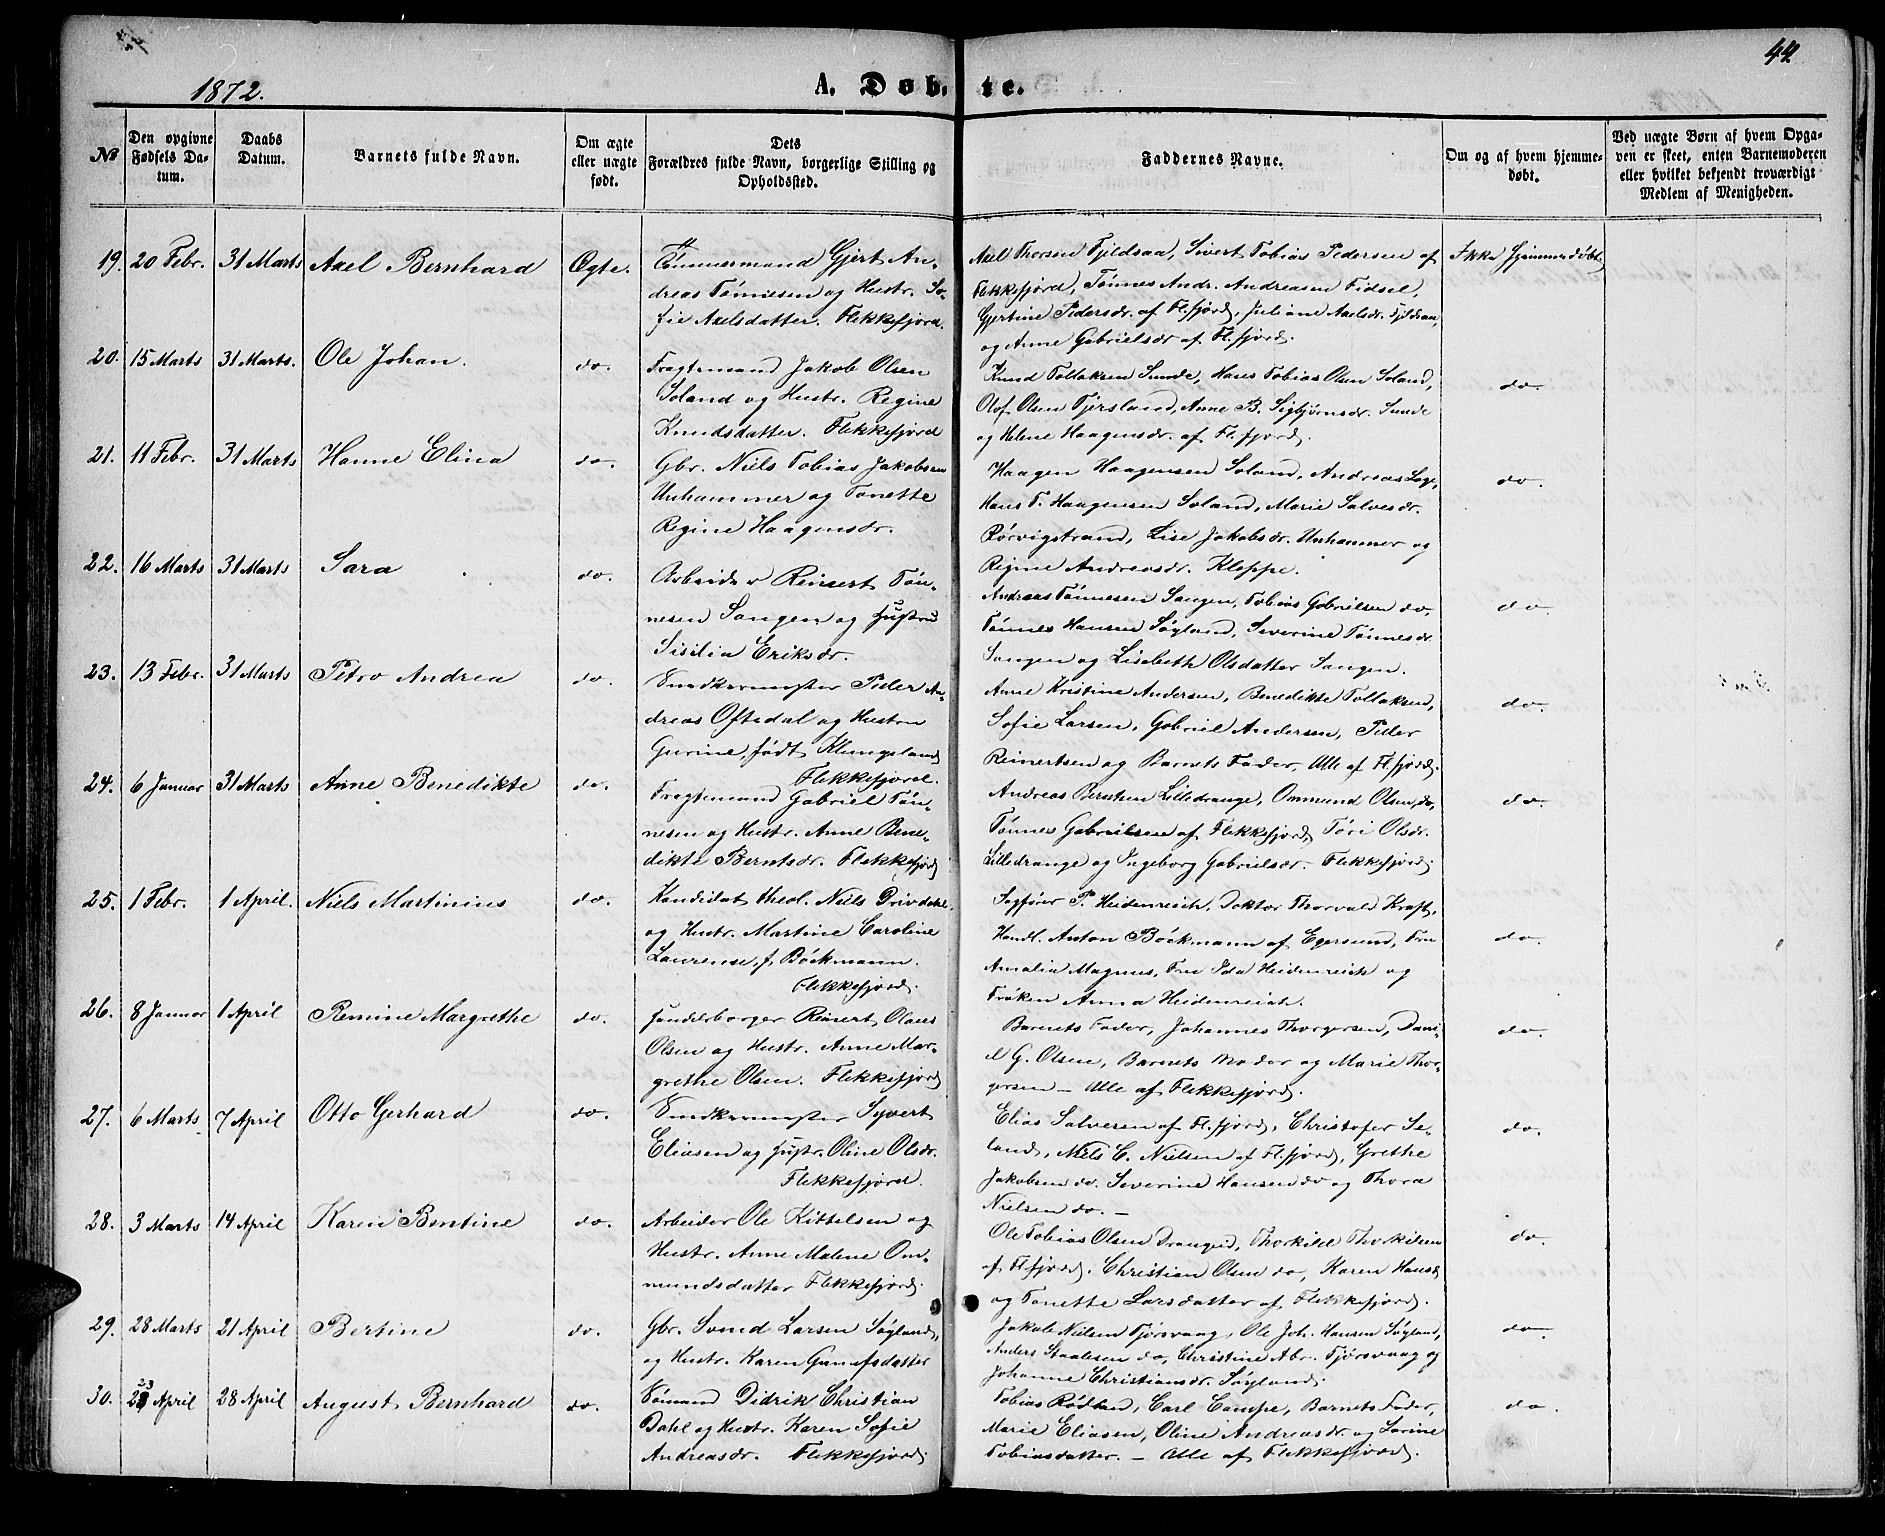 42
1872.
A. Døbte.
No
Den opgivne Fødsels Datum.
Daabs Datum.
Barnets fulde Navn.
Om ægte eller uægte født.
Dets Forældres fulde Navn, borgerlige Stilling og Opholdssted.
Faddernes Navne.
Om og af hvem hjemmedøbt.
Ved uægte Børn af hvem Opgaven er skeet, enten Barnemoderen eller hvilket bekjendt troværdigt Medlem af Menigheden.
19. 20 Febr. 31 Marts Axel Bernhard Ægte.
Tømmermand Gjert An-
dreas Tønnesen og Hustr. So-
fie Axelsdatter. Flekkefjord.
Axel Thorsen Fjeldsaa, Sivert Tobias Pedersen af
Flekkefjord, Tønnes Andr. Andreasen Fidsel,
Gjertine Pedersdr. af Fl.fjord, Juliane Axelsdr. Fjeldsaa,
og Anne Gabrielsdr af Fl.fjord.
Ikke hjemmedøbt
20. 15 Marts 31 Marts. Ole Johan. do.
Fragtemand Jakob Olsen
Soland og Hustr. Regine
Knudsdatter. Flekkefjord
Knud Tollaksen Sunde, Hans Tobias Olsen Soland,
Olof Olsen Fjersland, Anne B. Sigbjørnsdr. Sunde
og Helene Haagensdr. af Fl.fjord.
do
21. 11 Febr. 31 Marts Hanne Elina do.
Gbr. Niels Tobias Jakobsen
Unhammer og Tonette
Regine Haagensdr.
Haagen Haagensen Soland, Andreas
Hans T. Haagensen Soland, Marie Salvesdr.
Rørvigstrand, Lise Jakobsdr. Unhammer og
Regine Andreasdr. Kloppe.
do.
22. 16 Marts 31 Marts Sara do.
Arbeider Reinert Tøn-
nesen Sangen og Hustru
Sisilia Eriksdr.
Andreas Tønnesen Sangen, Tobias Gabrielsen do,
Tønnes Hansen Søyland, Severine Tønnesdr
Sangen og Lisebeth Olsdatter Sangen.
do.
23. 13 Febr. 31 Marts Petro Andrea do.
Snedkermester Peder An-
dreas Oftedal og Hustru
Gurine, født Klungeland
Flekkefjord.
Anne Kristine Andersen, Benedikte Tollaksen,
Sofie Larsen, Gabriel Andersen, Peder
Reinertsen og Barnets Fader, Alle af Fl.fjord.
do.
24. 6 Januar 31 Marts Anne Benedikte do.
Fragtemand Gabriel Tøn-
nesen og Hustr. Anne Bene-
dikte Berntsdr. Flekkefjord
Andreas Berntsen Lilledrange, Ommund Olsen, do,
Tønnes Gabrielsen af Flekkefjord, Tøri Olsdr.
Lilledrange og Ingeborg Gabrielsdr. Flekkefjord.
do
25. 1 Febr. 1 April. Niels Martinius do.
Kandidat theol. Niels Drivdahl
og Hustr. Martine Caroline
Laurense, f. Bøckmann.
Flekkefjord.
Sagfører P. Heidenreich, Doktor Thorvald Kraft,
Handl. Anton Bøckmann af Egersund, Fru
Amalia Magnus, Fru Ida Heidenreich og
Frøken Anna Heidenreich.
do.
26. 8 Januar 1 April Remine Margrethe do.
Handelsborger Reinert Olaus
Olsen og Hustr. Anne Mar-
grethe Olsen. Flekkefjord
Barnets Fader, Johannes Thorgersen, Dani-
el G. Olsen, Barnets Moder og Marie Thor-
gersen – Alle af Flekkefjord.
do.
27. 6 Marts 7 April Otto Gerhard do.
Snedkermester Syvert
Eliasen og Hustr. Oline Olsdr.
Flekkefjord.
Elias Salvesen af Fl.fjord, Christofer Se-
land, Niels C. Nielsen af Fl.fjord, Grethe
Jakobsen do. Severine Hansen do og Thora
Nielsen do. –
do.
28. 3 Marts 14 April Karen Bentine do.
Arbeider Ole Kittelsen og
Hustr. Anne Malene Om-
mundsdatter Flekkefjord.
Ole Tobias Olsen Drangeid, Thorkild Thorkildsen
af Fl.fjord. Christian Olsen do, Karen Hansd.
og Tonette Larsdatter af Flekkefjord.
do.
29. 28 Marts 21 April Bertine do.
Gbr. Svend Larsen Søyland,
og Hustr. Karen Gunufsdatter
Jakob Nielsen Tjørsvaag, Ole Joh. Hansen Søyland,
Anders Staalesen do, Christine Abr. Tjørsvaag og
Johanne Christiansdr. Søyland.
do
30. 23 April 28 April August Bernhard do.
Sømand Didrik Christian
Dahl og Hustr. Karen Sofie
Andreasdr. Flekkefjord.
Tobias Rødland, Carl Campe, Barnets Fader,
Marie Eliasen, Oline Andreasdr. og Larine
Tobiasdatter. – Alle af Flekkefjord.
do.